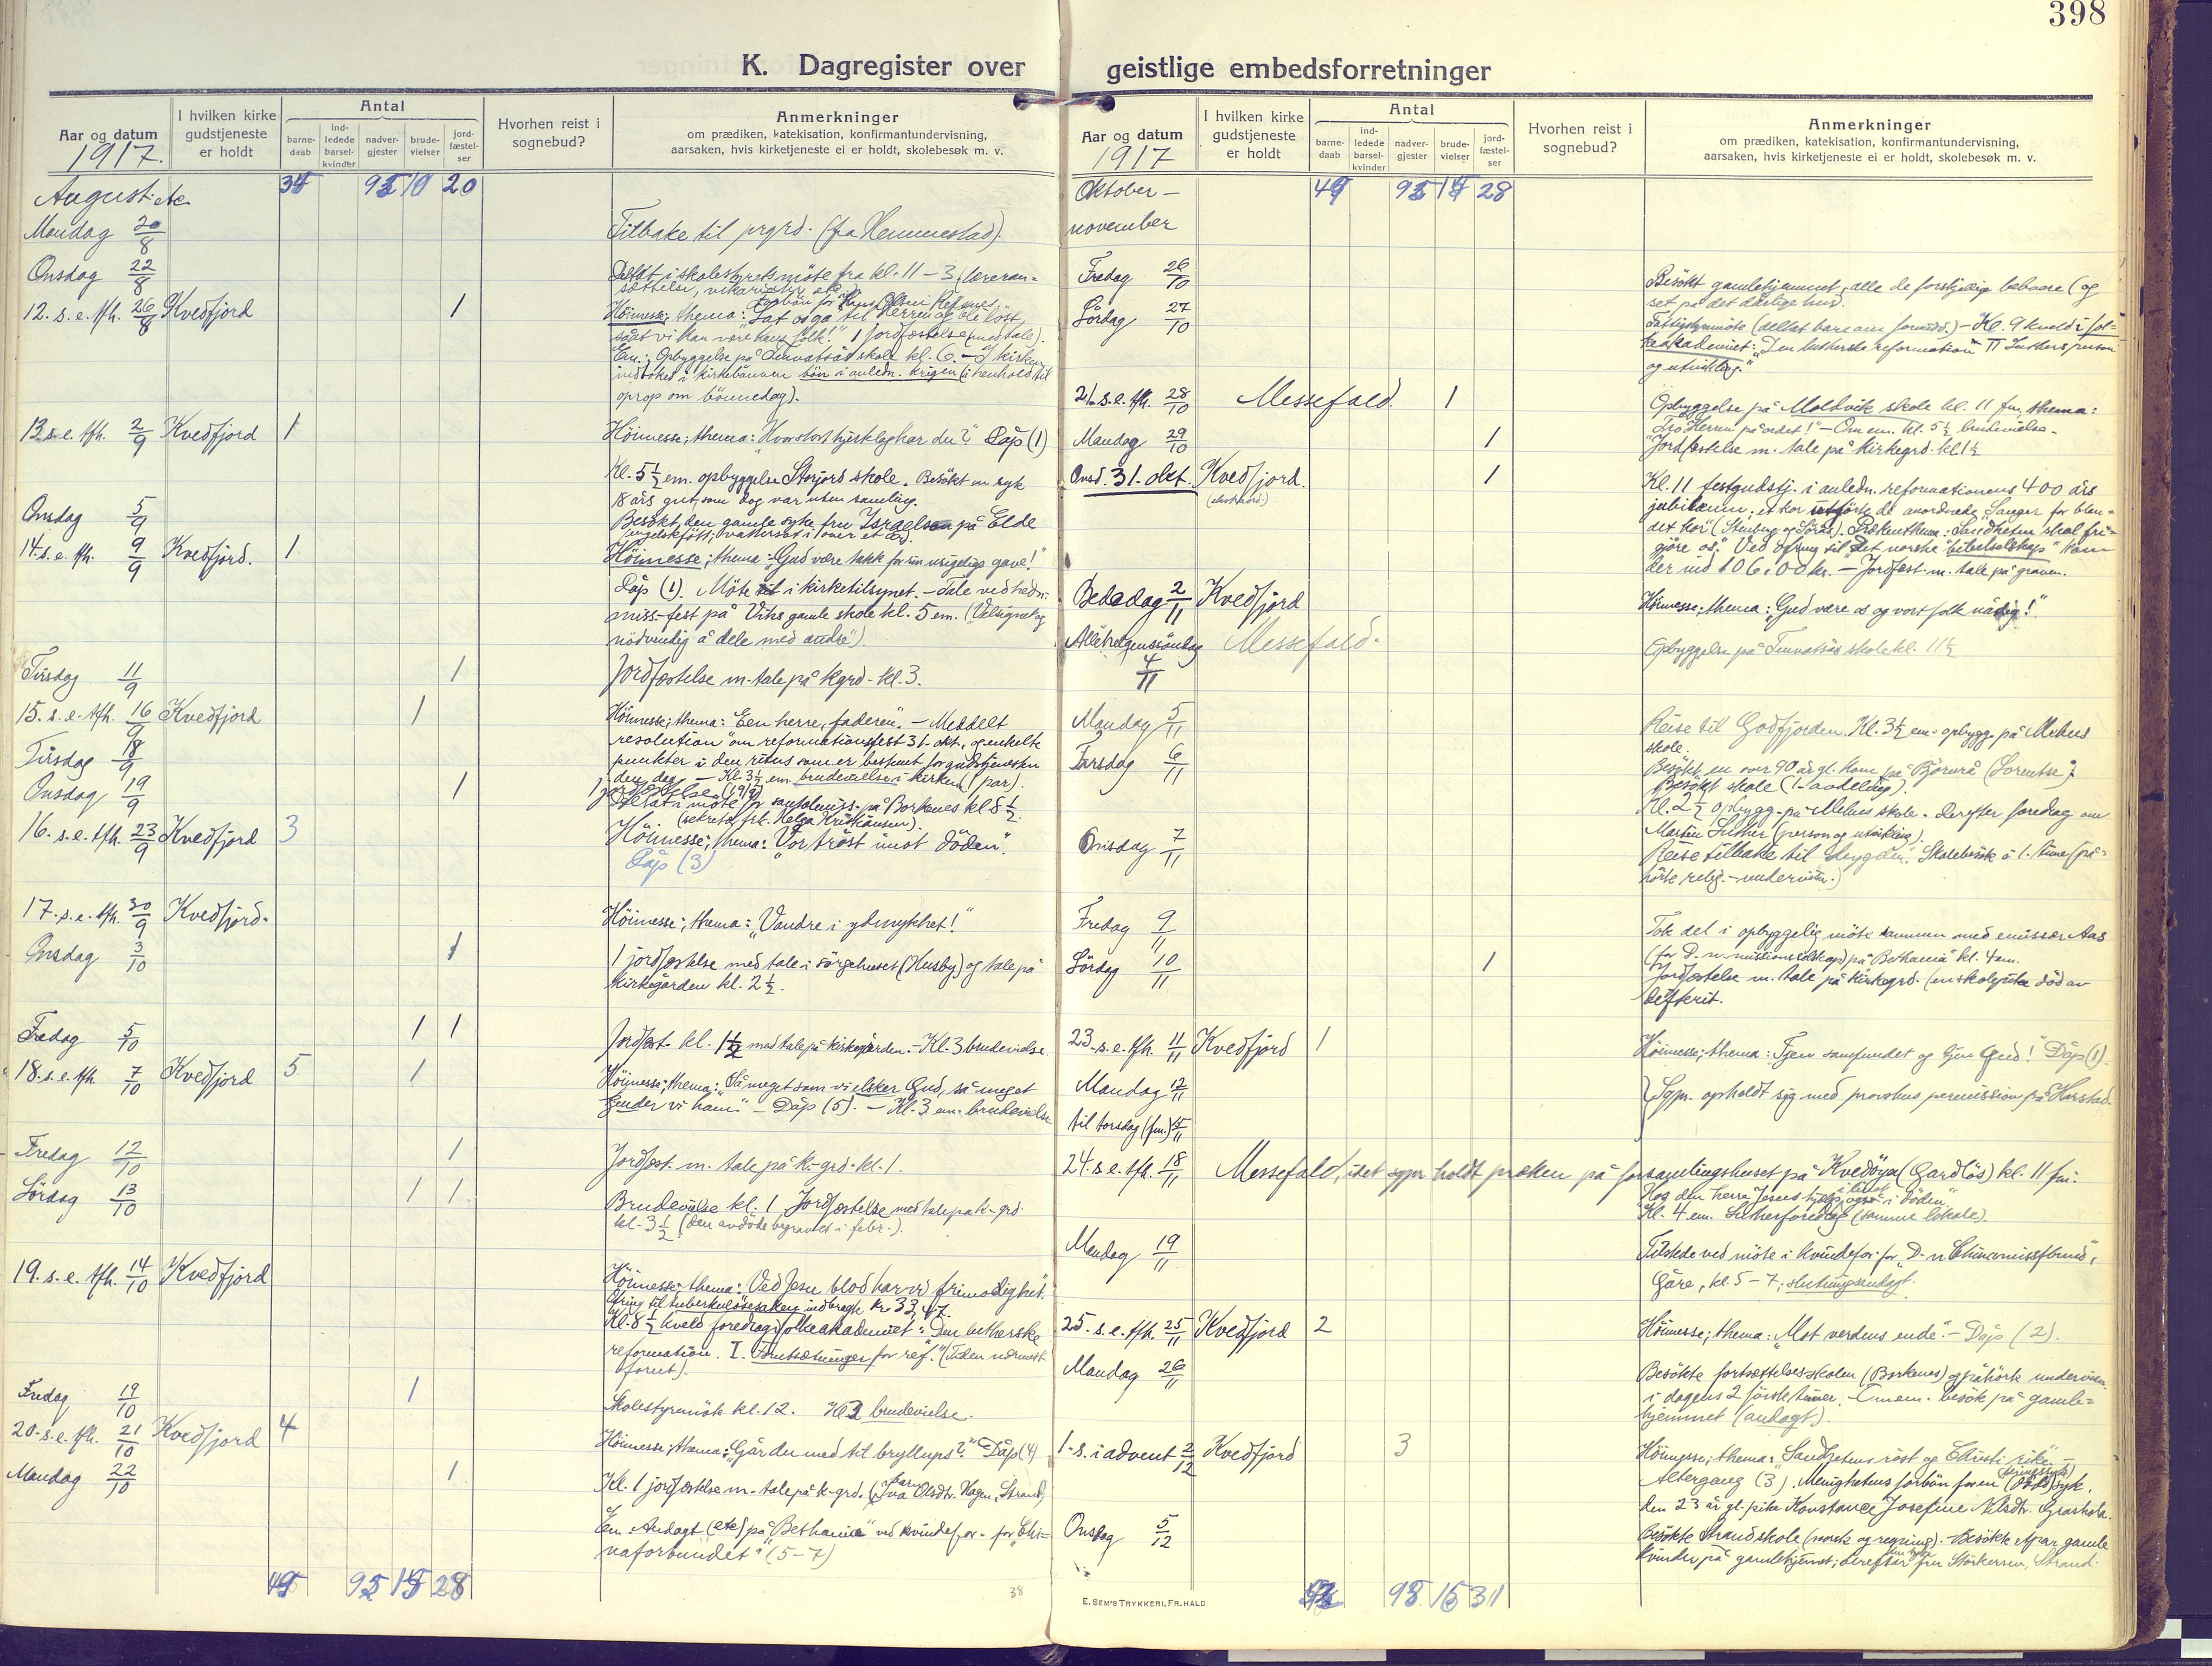 398
K. Dagregister over geistlige embedsforretninger
Aar og datum
1917.
I hvilken kirke gudstjeneste er holdt
Antal
barne-daab
ind-ledede barsel-kvinder
nadver-gjester
brude-vielser
jord-fæstel-ser
Hvorhen reist i sognebud?
Anmerkninger
om prædiken, katekisation, konfirmantundervisning,
aarsaken, hvis kirketjeneste ei er holdt, skolebesøk m. v.
August 20
Mandag 20/8 Tilbake til prgrd. (fra Hemmestad).
Onsdag 22/8 Deltat i skolestyrets möte fra kl. 11-3 (læreran-
sættelse, vikariater etc.)
12. s. e. tfh. 26/8 Kvedfjord 1 Höimesse; thema: "Lat os gå til Herren
såat vi kan være hans folk!" 1 jordfæstelse (med tale).
Em.: Opbyggelse på skole kl. 6. - I kirken
indtoket i kirkebönnen bön i anledn. krigen (i henhold til
oprop om bönnedag).
13. s. e. tfh. 2/9 Kvedfjord 1 Höimesse; thema: "Hvor har du?" Dåp (1)
Kl. 5½ em. opbyggelse Storjord skole. Besökt en syk
18 års gut, som dog var uten samling.
Onsdag 5/9 Besökt den gamle syke fru Israelsen på Elde
14. s. e. tfh. 9/9 Kvedfjord. 1 Höimesse; thema: "Gud være takk for sin usigelige gave!"
Dåp (1). Möte i kirketilsynet. - Tale ved hedn.
miss-fest på Viks gamle skole kl. 5 em. ("Velsignet og
nödvendig å dele med andre").
Tirsdag 11/9 1 Jordfæstelse m. tale på kgrd. kl. 3.
15. s. e. tfh. 16/9 Kvedfjord 1 Höimesse; thema: "Een herre, faderen". - Meddelt
resolution om reformationsfest 31. okt., og enkelte
punkter i den ritus som er bestemt for gudstjenesten
den dag. - Kl. 3½ em. brudevielse i kirken (1 par).
Tirsdag 18/9
1 jordfæstelse (19/9)
Onsdag 19/9 1 Deltat i möte for santalmiss. på Borkenes kl. 8½.
(sekretær frk. Helga Kristiansen).
16. s. e. tfh. 23/9 Kvedfjord 3 Höimesse; thema: "Vor tröst imot döden".
Dåp (3)
17. s. e. tfh. 30/9 Kvedfjord. Höimesse; thema: "Vandre i ydmykhet!"
Onsdag 3/10 1 1 jordfæstelse med tale i sörgehuset (Husby) og tale på
kirkegården kl. 2½.
Fredag 5/10 1 1 Jordfæst. kl. 1½ med tale på kirkegården. - Kl. 3 brudevielse.
18. s. e. tfh. 7/10 Kvedfjord 5 1 Höimesse; thema: "Så meget som vi elsker Gud, så meget
kjender vi ham". - Dåp (5). - Kl. 3 em. brudevielse
Fredag 12/10 1 Jordfæst. m. tale på k-grd. kl. 1.
Lördag 13/10 1 1 Brudevielse kl. 1, Jordfæstelse med tale på k-grd.
kl. 3½ (den avdöde begravet i febr.).
19. s. e. tfh. 14/10 Kvedfjord Höimesse; thema: "Ved Jesu blod har vi frimodighet".
Ofring til tuberkulösesaken indbragte kr. 33,47.
Kl. 8½ kveld foredrag i folkeakademiet: "Den lutherske
reformation. I. Forutsætninger for ref." (Tiden nærmest
forut).
Fredag 19/10 1 Skolestyremöte kl. 12. Kl. 3 brudevielse.
20. s. e. tfh. 21/10 Kvedfjord 4 Höimesse; thema: "Går du med til bryllups?" Dåp (4)
Mandag 22/10 1 Kl. 1 jordfæstelse m. tale på k-grd. (Olsdtr. Hagen, Strand)
Em. Andagt (etc) på "Bethania" ved kvindefor. for "Chi-
naforbundet" (5-7)
28
38
Aar og datum
1917
I hvilken kirke gudstjeneste er holdt
Antal
barne-daab
ind-ledede barsel-kvinder
nadver-gjester
brude-vielser
jord-fæstel-ser
Hvorhen reist i sognebud?
Anmerkninger
om prædiken, katekisation, konfirmantundervisning,
aarsaken, hvis kirketjeneste ei er holdt, skolebesøk m. v.
Oktober - 28
november
Fredag 26/10 Besökt gamlehjemmet, alle de forskjellige beboere (og
set på det daglige brud.
Lördag 27/10 Fattigstyremöte (deltat bare om formidd.) - Kl. 9 kveld i fol-
keakademiet: "Den lutherske reformation" II Luthers person
og utvikling."
21. s. e. tfh. 28/10 Messefald. 1 Opbyggelse på Moldvik skole kl. 11 fm, thema:
"Tro Herren på ordet!" - Om em. kl. 5½ brudevielse.
Mandag 29/10 1 Jordfæstelse m. tale på kirkegrd. kl. 1½
Onsd. 31. okt. Kvedfjord. 1 Kl. 11 festgudstj. i anledn. reformationens 400 års
jubilæum; et kor utförte de anordnede "Sanger for blan-
det kor" (Stenberg og Sörås). Prekenthema: "Sandheten skal fri-
gjöre os." Ved ofring til "Det norske bibelselskap" kom
der ind 106,00 kr. - Jordfæst. m. tale på graven.
Bededag 2/11 Kvedfjord Höimesse; thema: "Gud være os og vort folk nådig!"
Allehelgenssöndag 4/11 Messefald. Opbyggelse på skole kl. 11½
Mandag 5/11 Reise til Godfjorden. Kl. 3½ em. opbygg. på Melnes
skole.
Tirsdag 6/11 Besökt en over 90 år gl. kone på Björnrå (Lorentse).
Besökt skole (1. avdeling).
Kl. 2½ opbygg. på Melnes skole. Derefter foredag om
Martin Luther (person og utvikling).
Onsdag 7/11 Reise tilbake til "bygden". Skolebesök i 1. time (på-
hörte relig.-undervisn.)
Fredag 9/11 Tok del i opbyggelig möte sammen med emissær Aas
(for D. n. missionsselskap) på "Bethania" kl. 4 em.
Lördag 10/11 1 Jordfæstelse m. tale på kirkegrd. (en skolepike död av
difterit.
23. s. e. tfh. 11/11 Kvedfjord 1 Höimesse; thema: "Tjen samfundet og tjen Gud!" Dåp (1).
Mandag 12/11
til torsdag (fm.) 15/11 Sgpr. opholdt sig med provstens permission på Harstad.
24. s. e. tfh. 18/11 Messefald, idet sgpr holdt præken på forsamlingshuset på Kvedöya (Gardlös) kl. 11 fm:
"Hos den herre Jesus hjelp i livet, også i döden"
Kl. 4 em. Lutherforedrag (samme lokale).
Mandag 19/11 Tilstede ved möte i kvindefor. for "D. n Chinamissf.bund",
Gåre, kl. 5-7; slutningsandagt.
25. s. e. tfh. 25/11 Kvedfjord 2 Höimesse; thema: "Mot verdens ende". - Dåp (2).
Mandag 26/11 Besökte fortsættelsesskolen (Borkenes) og påhörte undervisn.
i dagens 2 förste timer. - Om em. besök på gamle-
hjemmet (andagt).
1. s. i advent 2/12 Kvedfjord 3 Höimesse; thema: Sandhetens röst og Christi rike". -
Altergang (3). Menighetens forbön for en (döds)syk,
den 23 år gl. pike Konstance Josefine Nilsdtr.
Onsdag 5/12 Besökte Strand skole (norsk og regning). - Besökte et par gamle
kvinder på gamlehjemmet; derefter fru Störkersen, Strand.
31
E. SEM'S TRYKKERI, FR.HALD